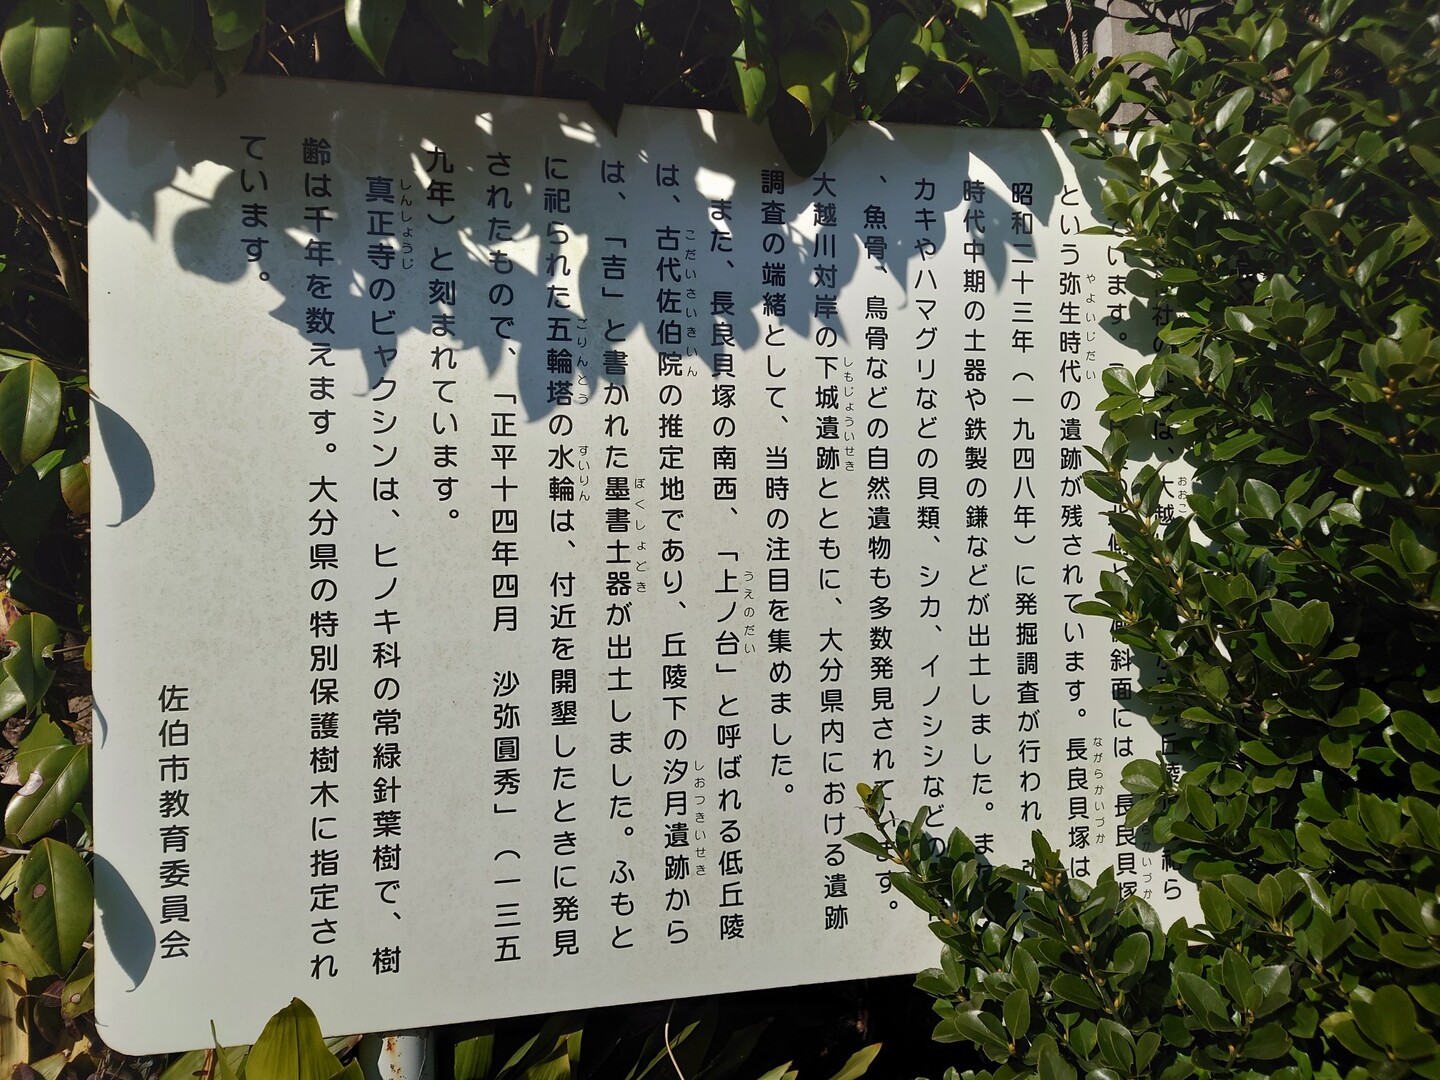 長
社の
は、
大越
丘陵
祀ら
ています。
斜面には
長良貝塚
という弥生時代の遺跡が残されています。長良貝塚は
昭和二十三年(一九四八年)に発掘調査が行われ
時代中期の土器や鉄製の鎌などが出土しました。ま
カキやハマグリなどの貝類、シカ、イノシシなどの
、魚骨、鳥骨などの自然遺物も多数発見されています。
大越川対岸の下城遺跡とともに、大分県内における遺跡
調査の端緒として、当時の注目を集めました。
また、長良貝塚の南西、「上ノ台」と呼ばれる低丘陵
は、古代佐伯院の推定地であり、丘陵下の汐月遺跡から
は、「吉」と書かれた墨書土器が出土しました。ふもと
に祀られた五輪塔の水輪は、付近を開墾したときに発見
されたもので、「正平十四年四月 沙弥圓秀」(一三五
九年)と刻まれています。
真正寺のビャクシンは、ヒノキ科の常緑針葉樹で、樹
齢は千年を数えます。大分県の特別保護樹木に指定され
ています。
佐伯市教育委員会